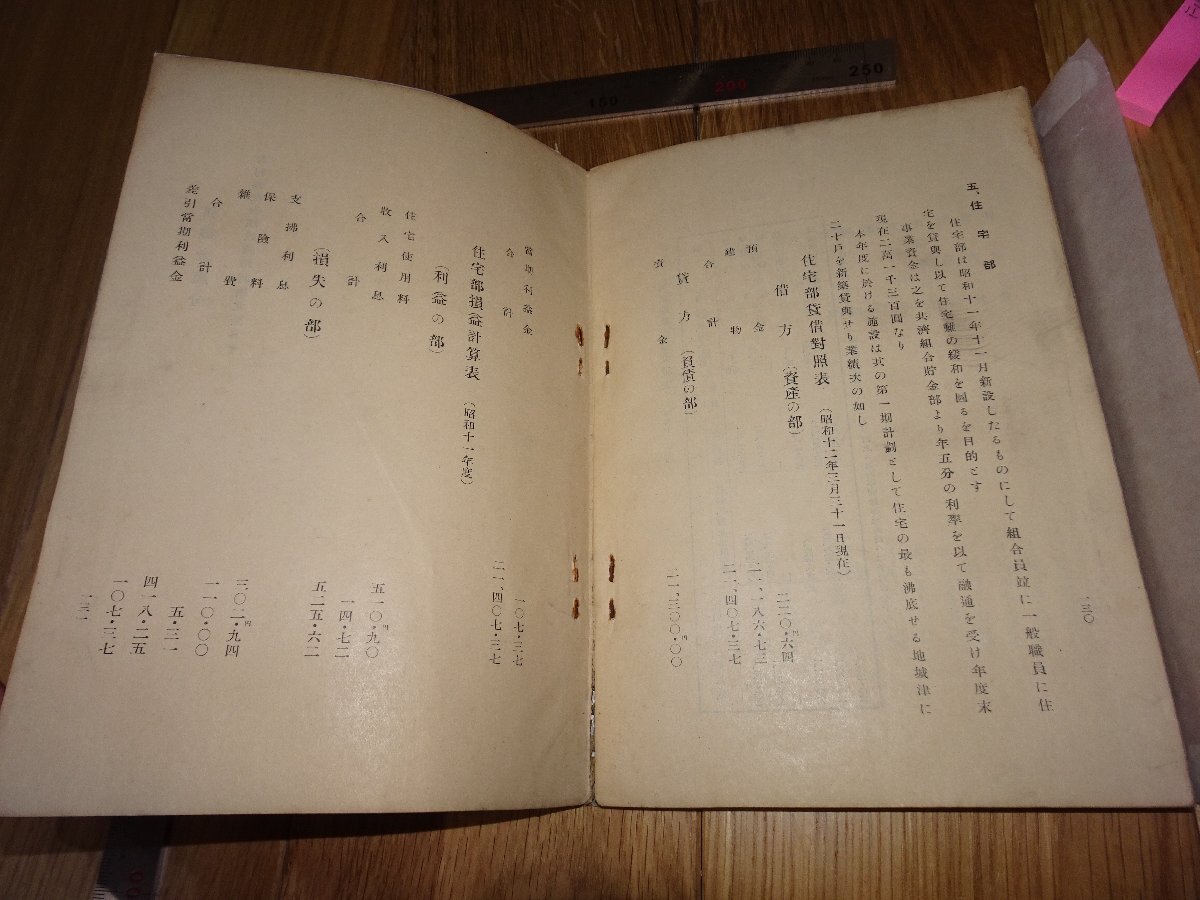 一三〇
五、住宅部
住宅部は昭和十一年十一月新設したるものにして組合員並に一般職員に住
宅を貸與し以て住宅難の緩和を圖るを目的とす
事業資金は之を共濟組合貯金部より年五分の利率を以て融通を受け年度末
現在二萬一千三百圓なり
本年度に於ける施設は其の第一期計劃として住宅の最も沸底せる地城津に
二十戶を新築貸與せり業績次の如し
住宅部貸借對照表(昭和十二年三月三十一日現在)
借方(資產の部)
預金 二二〇・六四円
建物 二一、一八六・七三
合計 二一、四〇七・三七
貸方(負債の部)
資金 二一、三〇〇・〇〇円
當期利益金 一〇七・三七
合計 二一、四〇七・三七
住宅部損益計算表(昭和十一年度)
(利益の部)
住宅使用料 五一〇・九〇円
收入利息 一四・七二
合計 五二五・六二
(損失の部)
支拂利息 三〇二・九四円
保險料 一一〇・〇〇
雜費 五・三一
合計 四一八・二五
差引當期利益金 一〇七・三七
一三一
150
200
250